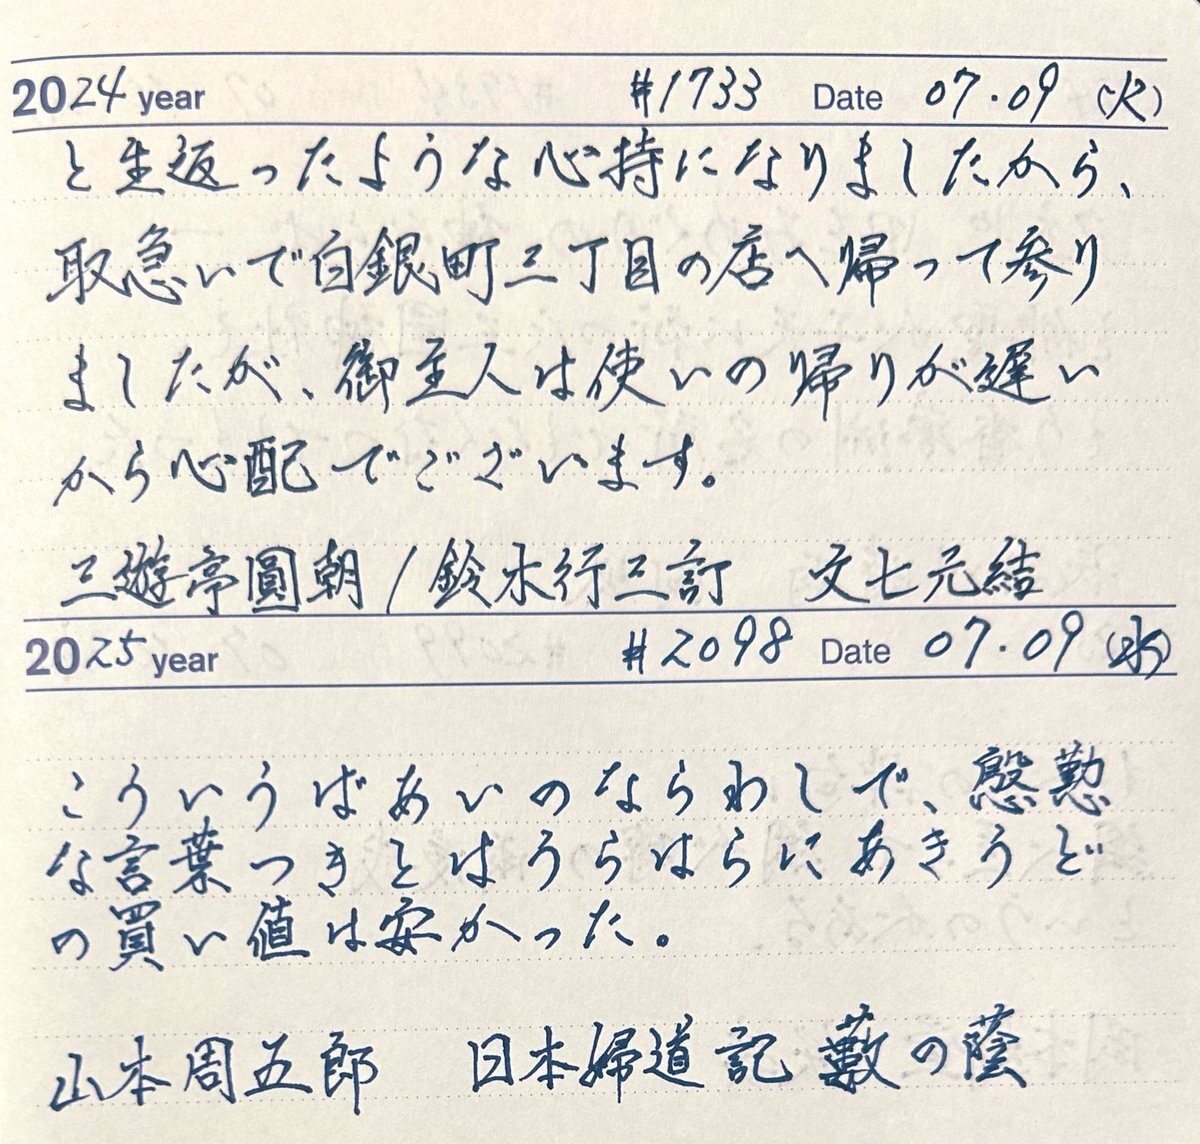 2024 year #1733 Date 07.09 (火)
と生返ったような心持になりましたから、
取急いで白銀町三丁目の店へ帰って参り
ましたが、御主人は使いの帰りが遅い
から心配でございます。
三遊亭圓朝/鈴木行三訂 文七元結
2025 year #2098 Date 07.09 (水)
こういうばあいのならわしで、慇懃
な言葉つきとはうらはらにあきうど
の買い値は安かった。
山本周五郎 日本婦道記 藪の蔭